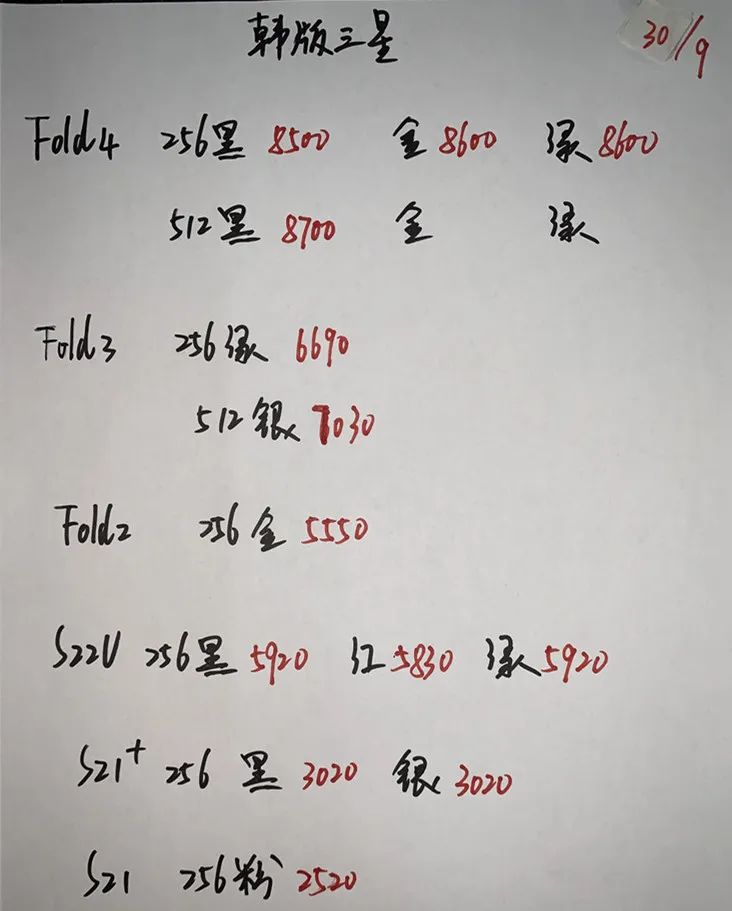 韩版三星 30/9
Fold4 256黑 8500 金 8600 绿 8600
512黑 8700 金 绿
Fold3 256绿 6690
512银 7030
Fold2 256金 5550
S22U 256黑 5920 红 5830 绿 5920
S21+ 256 黑 3020 银 3020
S21 256粉 2520